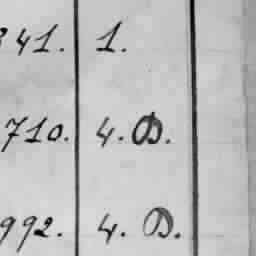 341. 1.
710. 4. D.
992. 4. D.